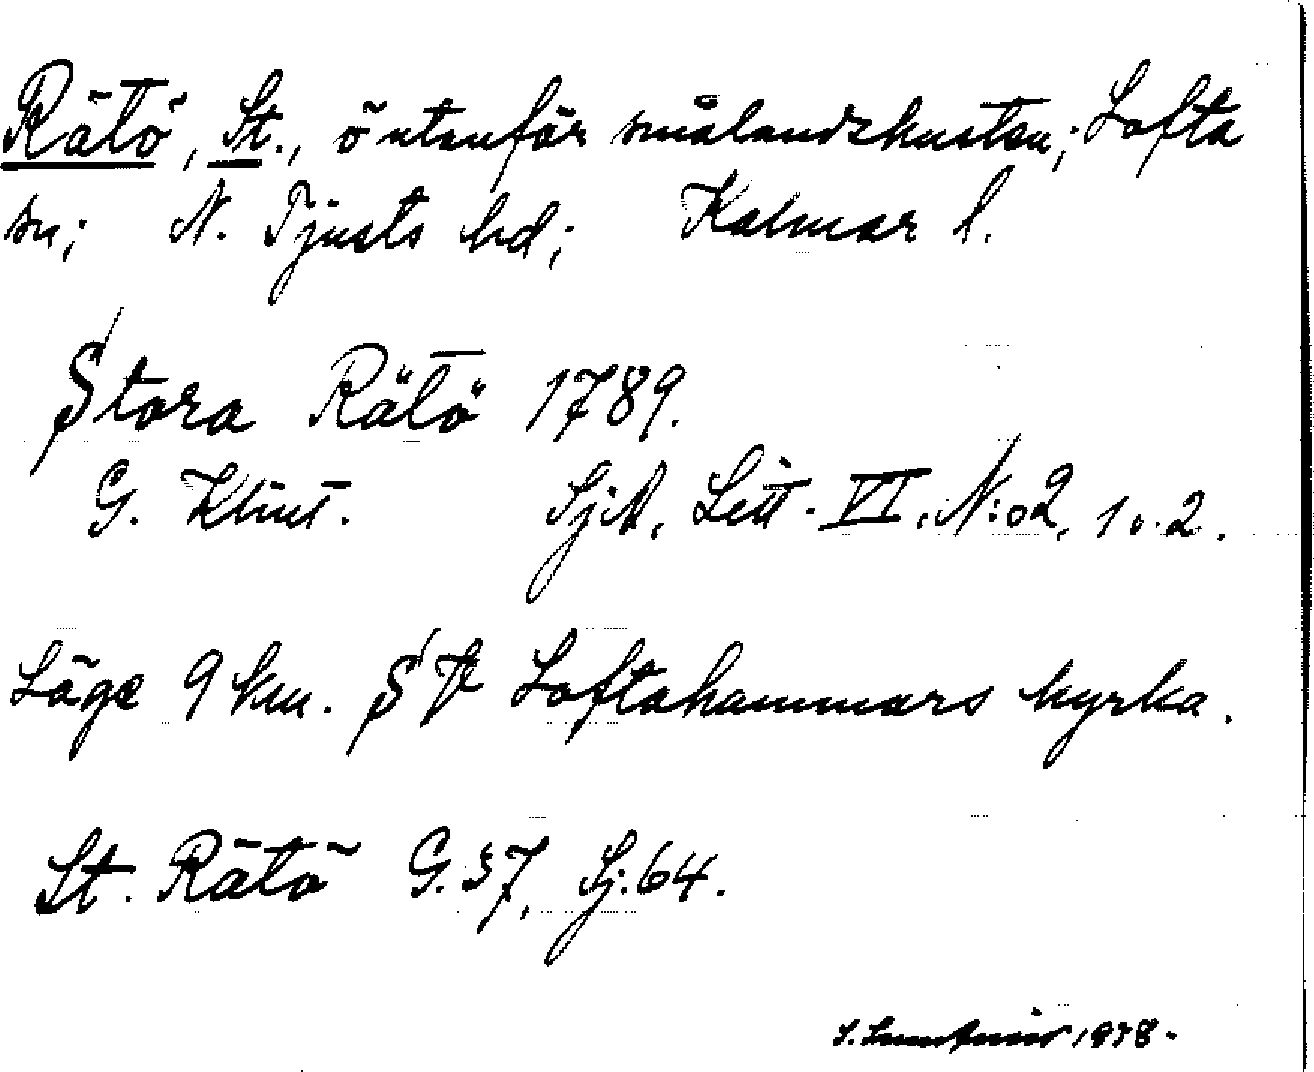 Rätö, St., ö utanför smålandskusten; Lofta
sn; N. Tjusts hd; Kalmar l.
Stora Rätö 1789.
G. Klint. SjA, Litt. VI. N:o 2, 1 o. 2.
Läge 9 km. SV Loftahammars kyrka.
St. Rätö G. 37, Sj. 64.
1938.